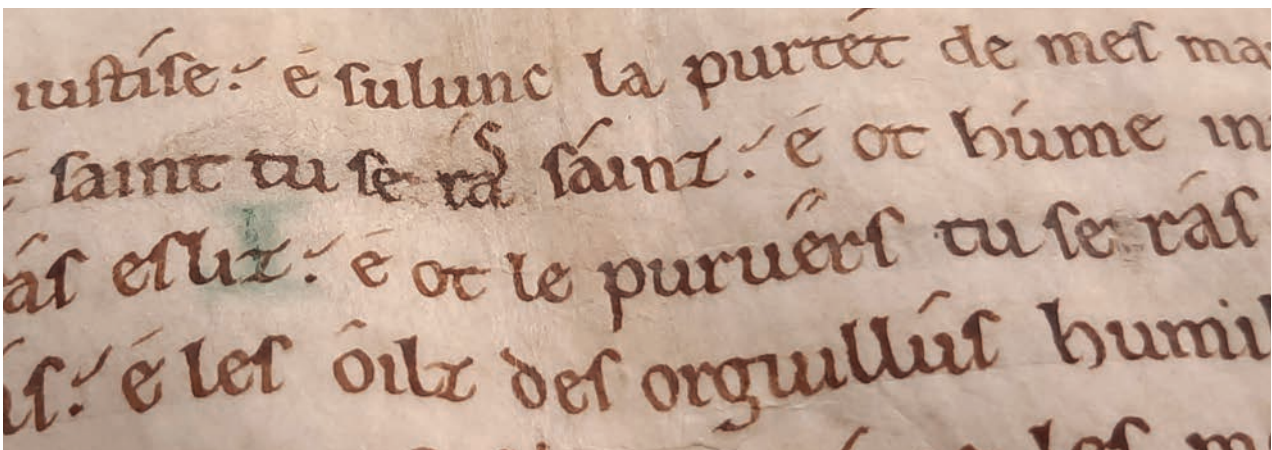 iustise: é sulunc la purtét de mes ma
saint tu se rás sáinz: é ot húme in
ás esliz: é ot le puruérs tu se rás
ás: é les óilz des orguillús humil
les m